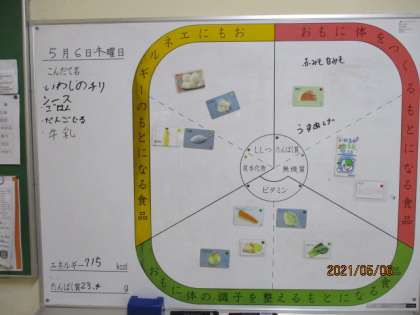 5月6日木曜日
こんだて名
いわしのチリ
ソース
牛乳
エネルギー715 kcal
たんぱく質23. g
おもにエネルギーのもとになる食品
おもに体をつくるもとになる食品
おもに体の調子を整えるもとになる食品
ししつ
たんぱく質
炭水化物
無機質
ビタミン
2021/05/06